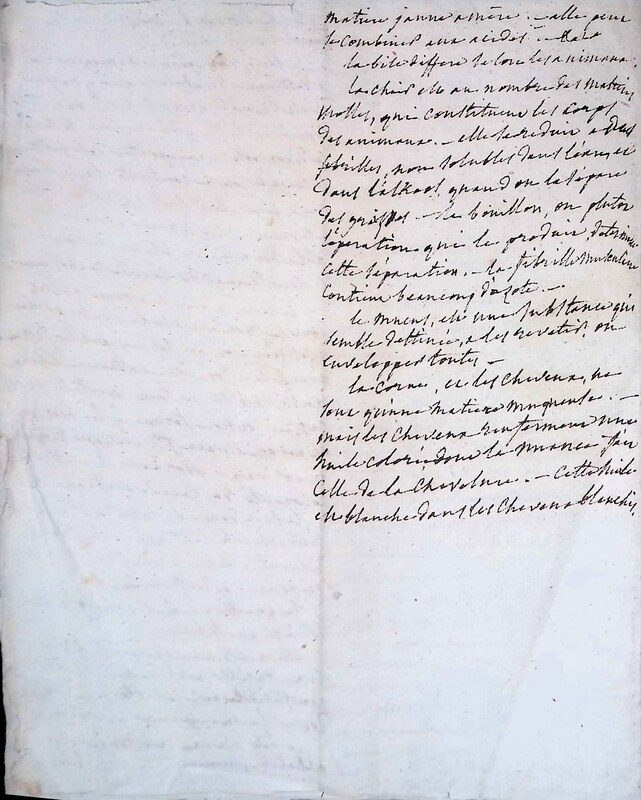 matiere jaunne amère. — elle peut
se combiner aux acides. —
la bile differe de tous les animaux.
la chair est au nombre des matieres
molles, qui constituent les corps
des animaux. — elle se reduit a des
fibrilles, non solubles dans l'eau, et
dans l'alkool, quand on la sépare
des graisses. — le bouillon, ou plutot
l'operation qui le produit, determine
cette séparation. — la fibrille musculaire
contient beaucoup d'azote. —
le mucus, est une substance qui
semble destinée, a les revetir, ou
envelopper toutes, —
la corne, et les cheveux, ne
sont qu'une matiere muqueuse. —
mais les cheveux renferment une
huile colorée dont la nuance fait
celle de la chevelure. — cette huile
est blanche dans les cheveux blanchis.